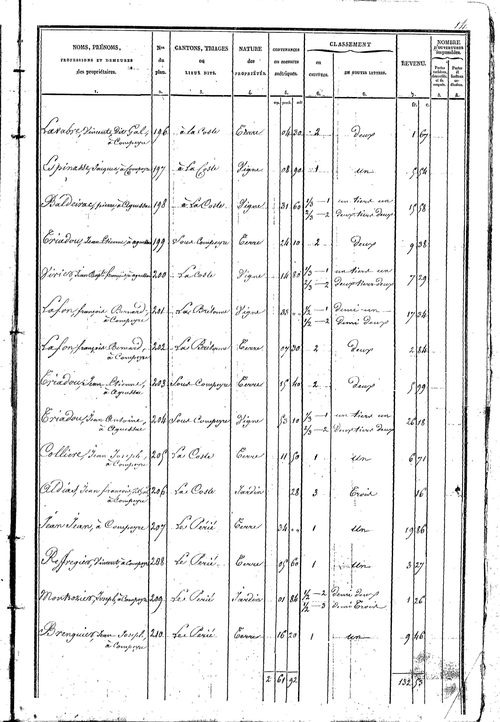 14.
NOMS, PRÉNOMS, PROFESSIONS ET DEMEURES des propriétaires. Nos du plan. CANTONS, TRIAGES ou LIEUX DITS. NATURE des PROPRIÉTÉS. CONTENANCES en mesures métriques. CLASSEMENT en chiffres. en toutes lettres. REVENU. NOMBRE D'OUVERTURES imposables.
1. 2. 3. 4. 5. 6. 6. 7. 8. 8.
196 à la Coste Terre 04 30 2 deux 1 67
à Compeyre
Espinasse, Jacques à Compeyre 197 à La Coste Vigne 08 90 1 un 5 54
198 à La Coste Vigne 31 60 1/3 — 1 un tiers un 15 58
2/3 — 2 deux tiers deux
Triadou, Jean Etienne, à Aguessac 199 Sous Compeyre Terre 24 10 2 deux 9 38
200 La Coste Vigne 14 80 1/3 — 1 un tiers un 7 29
2/3 — 2 deux tiers deux
Lafon, françois Bernard, 201 Vigne 35 1/2 — 1 demi un 17 34
à Compeyre 1/2 — 2 demi deux
Lafon, françois Bernard, 202 Terre 07 30 2 deux 2 84
à Compeyre
Triadou, Jean Etienne, 203 Sous Compeyre Terre 15 40 2 deux 5 99
à Aguessac
Triadou, Jean Antoine, 204 Sous Compeyre Vigne 53 10 1/3 — 1 un tiers un 26 18
à Aguessac 2/3 — 2 deux tiers deux
Colliere, Jean Joseph, 205 La Coste Terre 11 50 1 un 6 71
à Compeyre
206 La Coste Jardin 28 3 trois 16
à Compeyre
Jean Jean, à Compeyre 207 Le Périé Terre 34 1 un 19 86
208 Le Périé Terre 05 60 1 un 3 27
Joseph, à Compeyre 209 Le Périé Jardin 01 84 1/2 — 2 demi deux 1 26
1/2 — 3 demi trois
Brenguier, Jean Joseph, 210 Le Périé Terre 16 20 1 un 9 46
à Compeyre
2 61 92 132 53